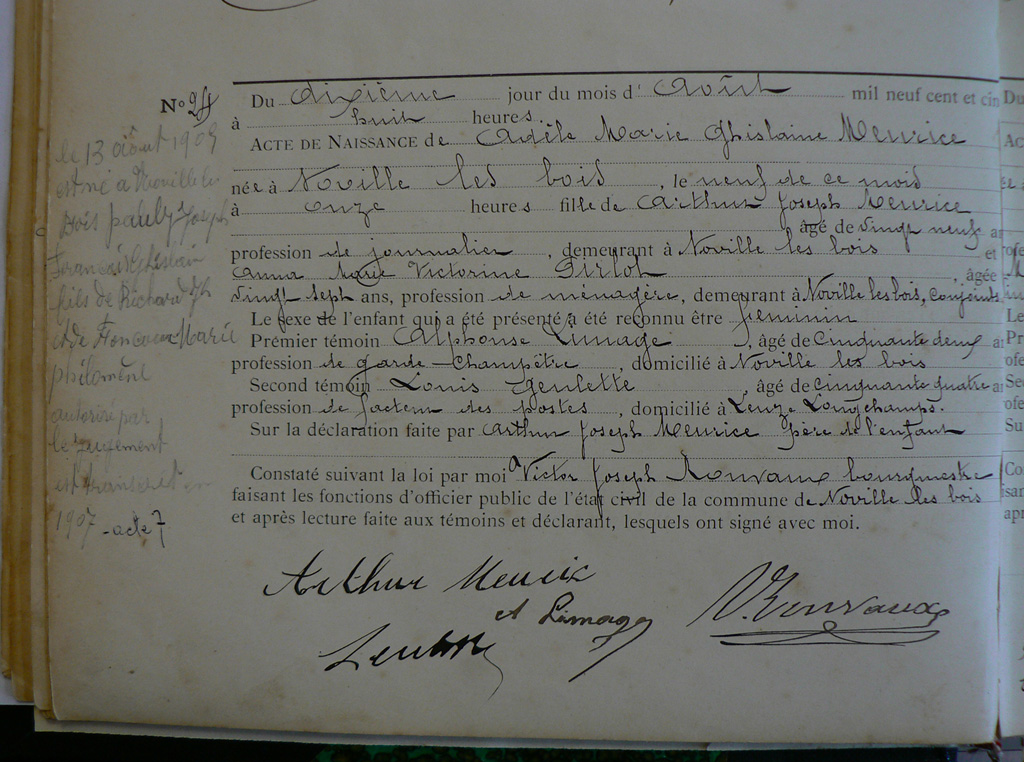 N° 24
Du dixième jour du mois d'Août mil neuf cent et cin
à huit heures.
ACTE DE NAISSANCE de Adèle Marie Ghislaine Meurice
née à Noville les bois, le neuf de ce mois
à onze heures fille de Arthur Joseph Meurice
âgé de Vingt neuf a
profession de journalier, demeurant à Noville les bois et
Anna Marie Victorine Pirlot, âgée
Vingt sept ans, profession de ménagère, demeurant à Noville les bois, conjoints
Le sexe de l'enfant qui a été présenté a été reconnu être féminin
Premier témoin Alphonse Limage, âgé de Cinquante deux a
profession de garde-Champêtre, domicilié à Noville les bois
Second témoin Louis Genlette, âgé de Cinquante quatre a
profession de facteur des postes, domicilié à Leuze Longchamps.
Sur la déclaration faite par Arthur Joseph Meurice père de l'enfant
Constaté suivant la loi par moi Victor Joseph Rouvaux bourgmestre
faisant les fonctions d'officier public de l'état civil de la commune de Noville les bois
et après lecture faite aux témoins et déclarant, lesquels ont signé avec moi.
Arthur Meurice
A Limage
V. Rouvaux
le 13 août 190
est né à Noville les
Bois pauly Joseph
François Ghislain
fils de Richard
et de Marie
philomène
autorisé par
le jugement
est transcrit en
1907 - acte 7